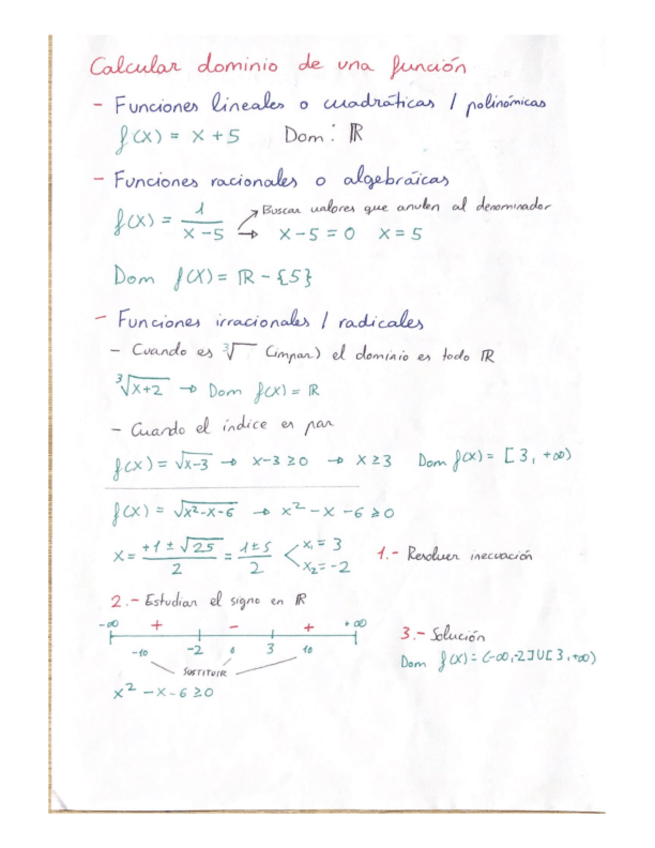 Calcular dominio de una función
- Funciones lineales o cuadráticas / polinómicas
f(x) = x + 5 Dom: ℝ
- Funciones racionales o algebráicas
f(x) = 1/(x-5) → Buscar valores que anulen al denominador
→ x-5 = 0 x = 5
Dom f(x) = ℝ - {5}
- Funciones irracionales / radicales
- Cuando es ∛ (impar) el dominio es todo ℝ
∛(x+2) → Dom f(x) = ℝ
- Cuando el índice es par
f(x) = √(x-3) → x-3 ≥ 0 → x ≥ 3 Dom f(x) = [3, +∞)
f(x) = √(x²-x-6) → x² - x - 6 ≥ 0
x = (+1 ± √25)/2 = (1±5)/2 < x₁ = 3
x₂ = -2
1.- Resolver inecuación
2.- Estudiar el signo en ℝ
-∞ + - + +∞
-10 -2 0 3 10
SUSTITUIR
x² - x - 6 ≥ 0
3.- Solución
Dom f(x) = (-∞,-2]U[3,+∞)